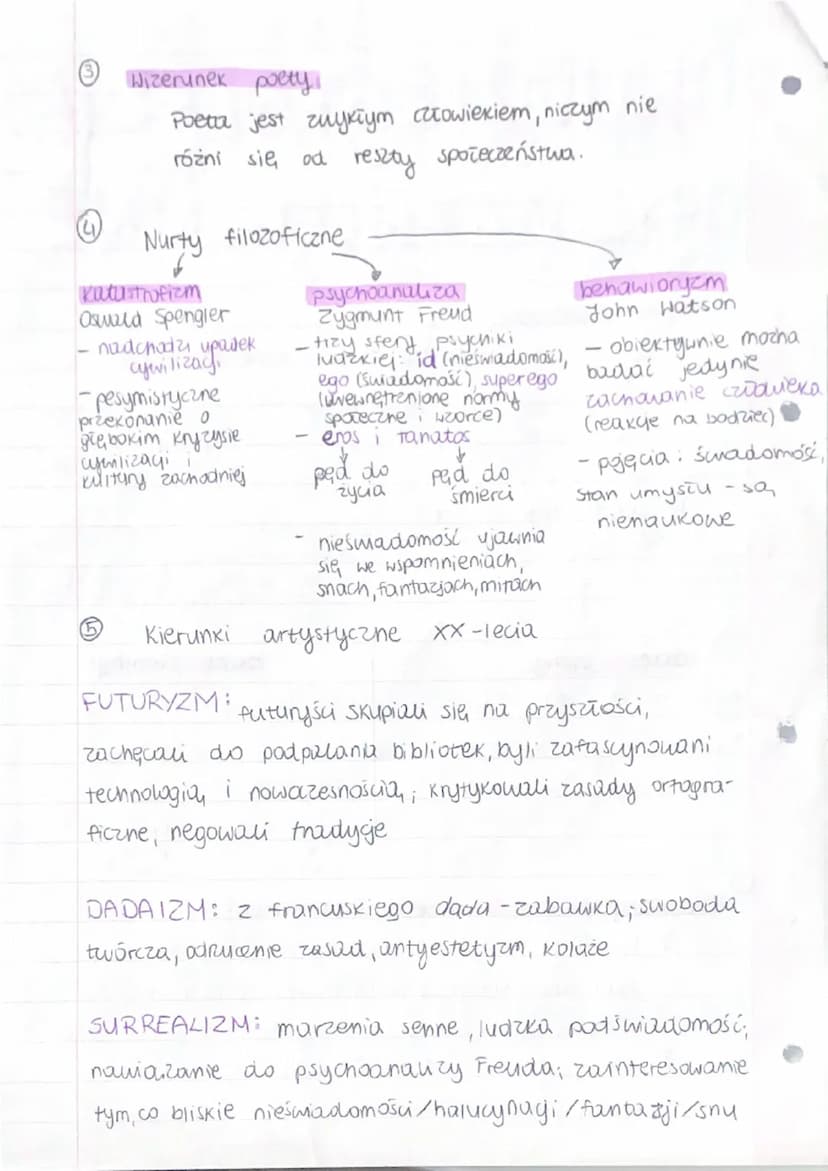 ③ Wizerunek poety
Poeta jest zwykłym człowiekiem, niczym nie
różni się od reszty społeczeństwa.
④ Nurty filozoficzne
katastrofizm
Oswald Spengler
- nadchodzi upadek
cywilizacji
- pesymistyczne
przekonanie o
głębokim kryzysie
cywilizacji i
kultury zachodniej
psychoanaliza
Zygmunt Freud
- trzy sfery psychiki
ludzkiej: id (nieświadomość),
ego (świadomość), superego
(uwewnętrznione normy
społeczne i wzorce)
- eros i Tanatos
pęd do
życia
pęd do
śmierci
- nieświadomość ujawnia
się we wspomnieniach,
snach, fantazjach, mitach
behawioryzm
John Watson
- obiektywnie można
badać jedynie
zachowanie człowieka
(reakcje na bodziec)
- pojęcia: świadomość,
stan umysłu - są
nienaukowe
⑤ Kierunki artystyczne XX-lecia
FUTURYZM: futuryści skupiali się na przyszłości,
zachęcali do podpalania bibliotek, byli zafascynowani
technologią i nowoczesnością; krytykowali zasady ortogra-
ficzne, negowali tradycje
DADAIZM: z francuskiego dada - zabawka; swoboda
twórcza, odrzucenie zasad, antyestetyzm, kolaże
SURREALIZM: marzenia senne, ludzka podświadomość,
nawiązanie do psychoanalizy Freuda; zainteresowanie
tym, co bliskie nieświadomości/halucynacji/fantazji/snu